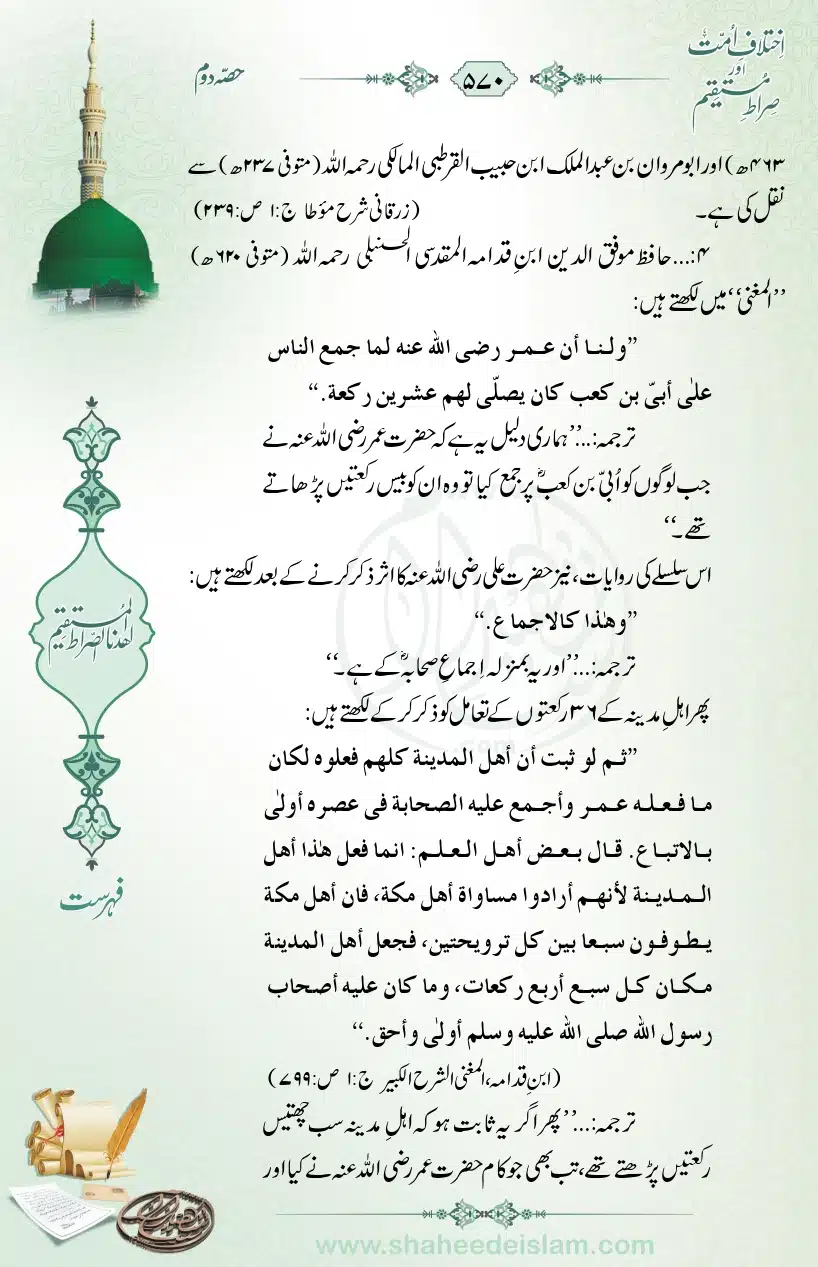 اِختلافِ اُمّت
اور
صِراطِ مُستقیم
۵۷۰
حصّہ دوم
۴۶۳ھ) اور ابومروان بن عبدالملک ابن حبیب القرطبی المالکی رحمہ اللہ (متوفی ۲۳۷ھ) سے
نقل کی ہے۔ (زرقانی شرح مؤطا ج:۱ ص:۲۳۹)
۴:...حافظ موفق الدین ابنِ قدامہ المقدسی الحنبلی رحمہ اللہ (متوفی ۶۲۰ھ)
’’المغنی‘‘ میں لکھتے ہیں:
”ولنا أن عمر رضی الله عنه لما جمع الناس
علٰی أبیّ بن کعب کان یصلّی لھم عشرین رکعة.“
ترجمہ:...’’ہماری دلیل یہ ہے کہ حضرت عمر رضی اللہ عنہ نے
جب لوگوں کو اُبیّ بن کعبؓ پر جمع کیا تو وہ ان کو بیس رکعتیں پڑھاتے
تھے۔‘‘
اس سلسلے کی روایات، نیز حضرت علی رضی اللہ عنہ کا اثر ذکر کرنے کے بعد لکھتے ہیں:
”وھٰذا کالاجماع.“
ترجمہ:...’’اور یہ بمنزلہ اِجماعِ صحابہؓ کے ہے۔‘‘
پھر اہلِ مدینہ کے ۳۶ رکعتوں کے تعامل کو ذکر کرکے لکھتے ہیں:
”ثم لو ثبت أن أھل المدینة کلھم فعلوه لکان
ما فعله عمر وأجمع علیه الصحابة فی عصره أولٰی
بالاتباع. قال بعض أھل العلم: انما فعل ھٰذا أھل
المدینة لأنھم أرادوا مساواة أھل مکة، فان أھل مکة
یطوفون سبعا بین کل ترویحتین، فجعل أھل المدینة
مکان کل سبع أربع رکعات، وما کان علیه أصحاب
رسول الله صلی الله علیه وسلم أولٰی وأحق.“
(ابنِ قدامہ، المغنی الشرح الکبیر ج:۱ ص:۷۹۹)
ترجمہ:...’’پھر اگر یہ ثابت ہو کہ اہلِ مدینہ سب چھتیس
رکعتیں پڑھتے تھے، تب بھی جو کام حضرت عمر رضی اللہ عنہ نے کیا اور
اھدنا الصّراط المُستقیم
فہرست
www.shaheedeislam.com